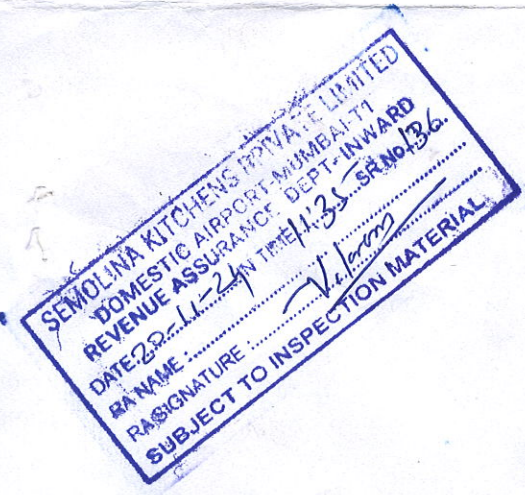 SEMOLINA KITCHENS PRIVATE LIMITED
DOMESTIC AIRPORT-MUMBAI-T1
REVENUE ASSURANCE DEPT-INWARD
DATE: 20-11-24 IN TIME 11:35 SR.NO 136.
RA NAME :
RA SIGNATURE :
SUBJECT TO INSPECTION MATERIAL